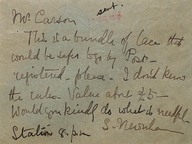 Mr Carson sent.
This is a bundle of Lace that
would be safer to go by Post -
registered - please - I don't know
the rules. Value abt £5 -
Would you kindly do what is needful
S. Newman
Station 8. p.m